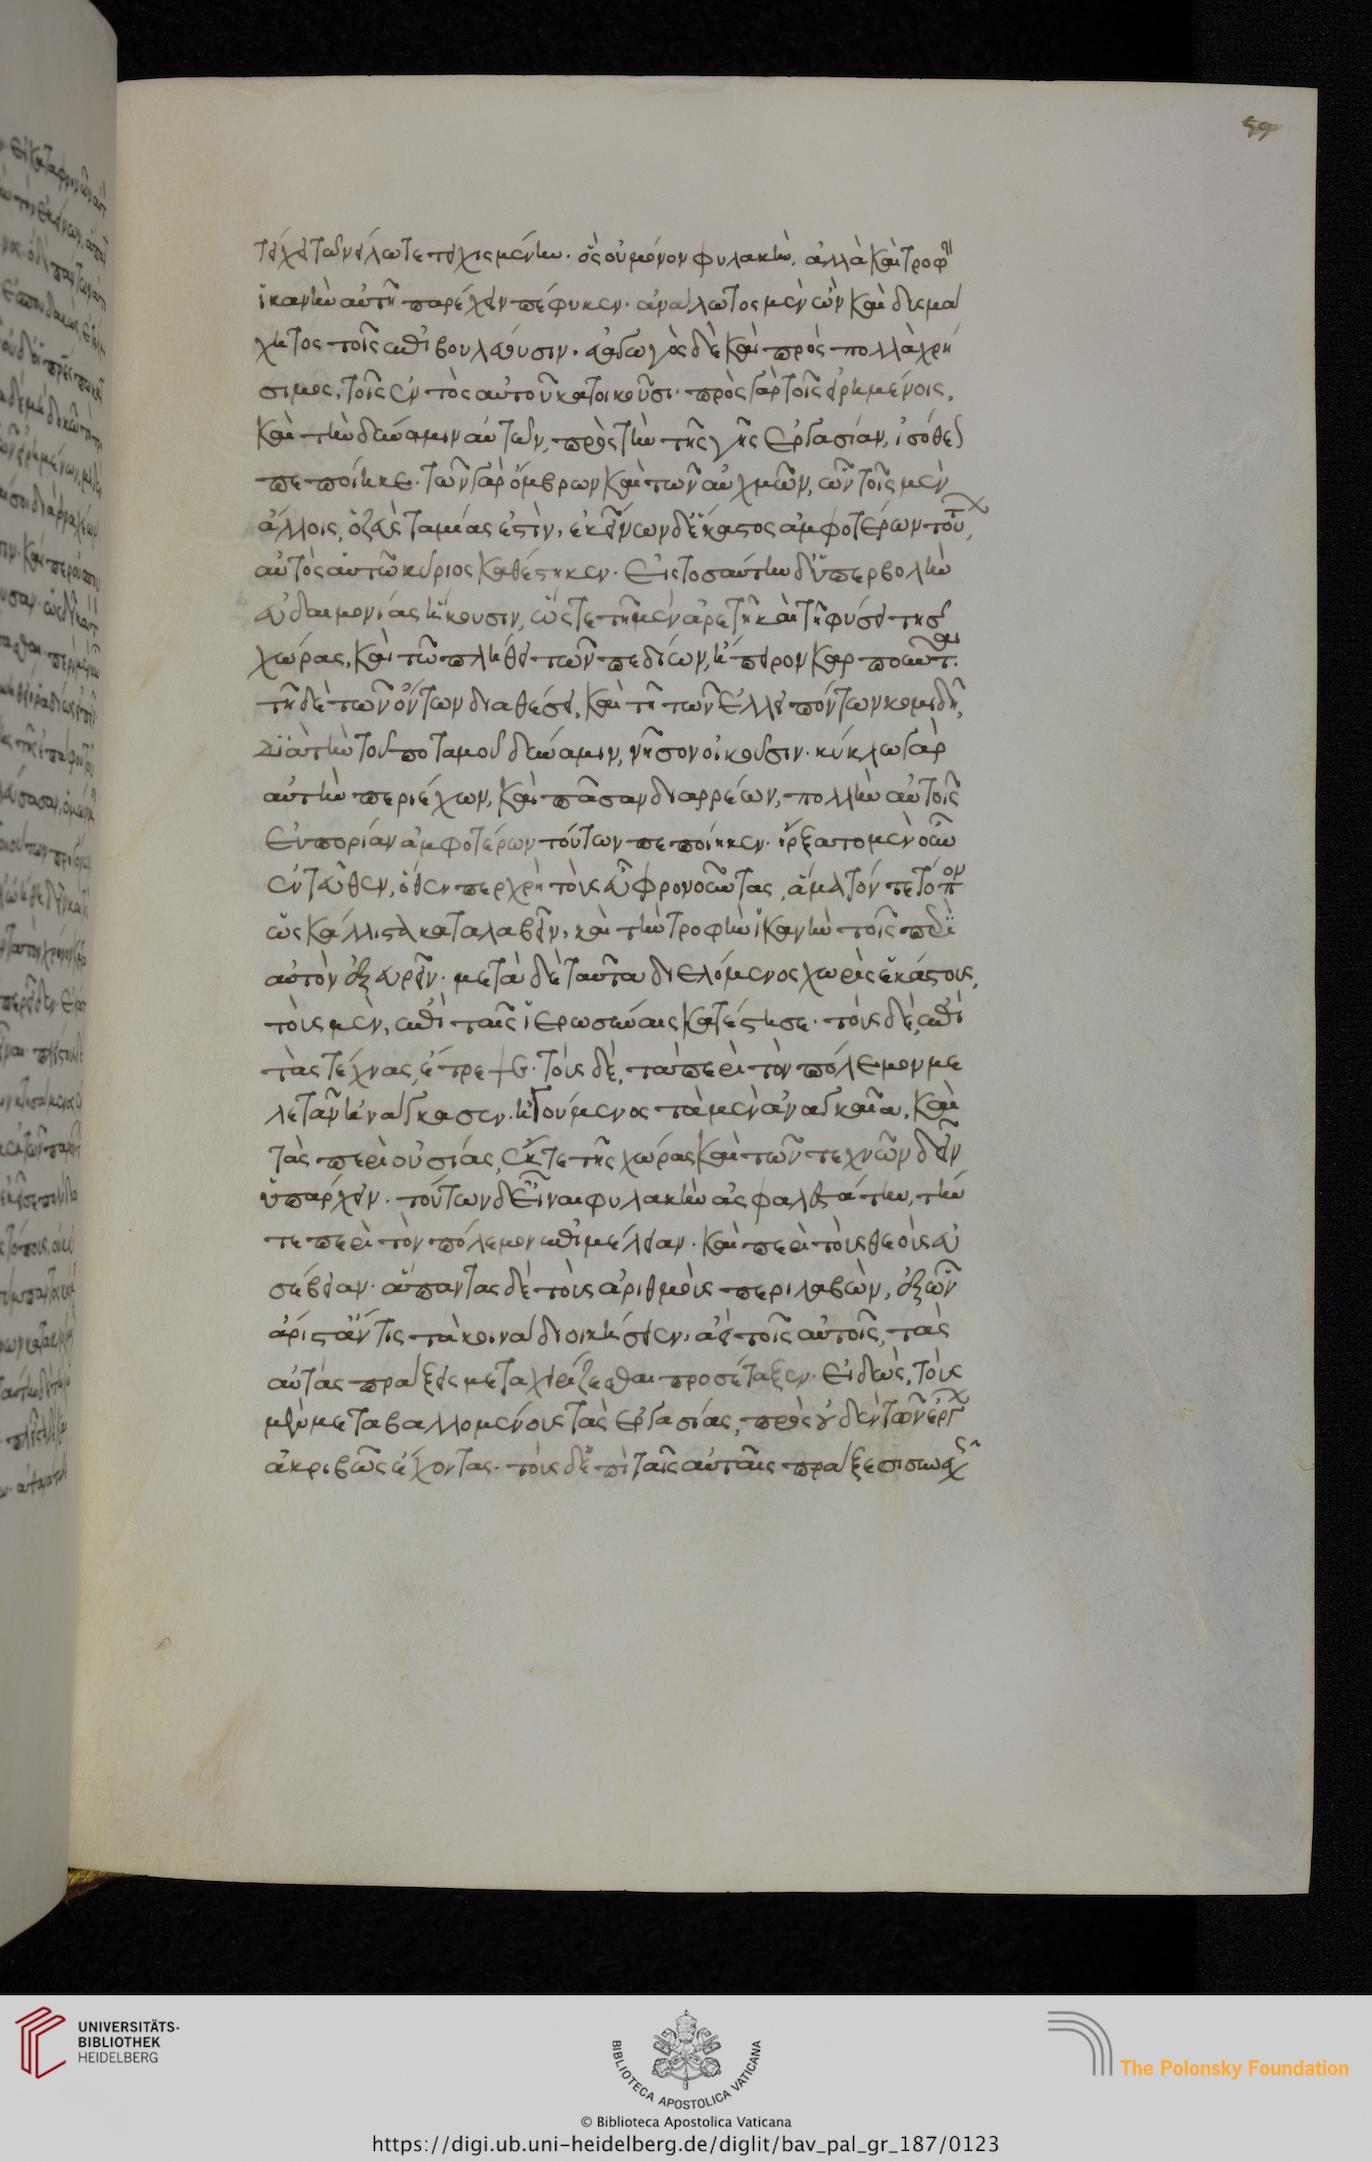 τείχει τῶ νείλω τετειχισμένην. ὃς οὐ μόνον φυλακὴν, ἀλλὰ καὶ τροφὴν
ἱκανὴν αὐτῆ παρέχειν πέφυκεν. ἀνάλωτος μὲν ὢν καὶ δυσμά
χητος τοῖς ἐπιβουλεύουσιν. εὐάγωγὸς δὲ καὶ πρὸς πολλὰ χρή
σιμος, τοῖς ἐντὸς αὐτοῦ κατοικοῦσι. πρὸς γὰρ τοῖς εἰρημένοις,
καὶ τὴν δύναμιν αὐτῶν, πρὸς τὴν τῆς γῆς ἐργασίαν, ἰσόθεον
πεποίηκε. τῶν γὰρ ὄμβρων καὶ τῶν αὐχμῶν, ὧν τοῖς μὲν
ἄλλοις, ὁ ζεὺς ταμίας ἐστὶν, ἐκείνων δ' ἕκαστος ἀμφοτέρων τούτων,
αὐτὸς αὑτῶ κύριος καθέστηκεν. εἰς τοσαύτην δ' ὑπερβολὴν
εὐδαιμονίας ἥκουσιν, ὥστε τῆ μὲν ἀρετῆ καὶ τῆ φύσει τῆς
χώρας, καὶ τῶ πλήθει τῶν πεδίων, ἤπειρον καρποῦνται.
τῆ δὲ τῶν ὄντων διαθέσει, καὶ τῆ τῶν ἐλλειπόντων κομιδῆ,
διὰ τὴν τοῦ ποταμοῦ δύναμιν, νῆσον οἰκοῦσιν. κύκλω γὰρ
αὐτὴν περιέχων, καὶ πᾶσαν διαρρέων, πολλὴν αὐτοῖς
εὐπορίαν ἀμφοτέρων τούτων πεποίηκεν. ἤρξατο μὲν οὖν
ἐντεῦθεν, ὅθεν περ χρὴ τοὺς εὖ φρονοῦντας, ἅμα τόν τε τόπον
ὡς κάλλιστα καταλαβεῖν, καὶ τὴν τροφὴν ἱκανὴν τοῖς περὶ
αὐτὸν ἐξευρεῖν. μετὰ δὲ ταῦτα διελόμενος χωρὶς ἑκάστους,
τοὺς μὲν, ἐπὶ ταῖς ἱερωσύναις κατέστησε. τοὺς δὲ, ἐπὶ
τὰς τέχνας, ἔτρεψε. τοὺς δὲ, τὰ περὶ τὸν πόλεμον με
λετᾶν ἠνάγκασεν. ἡγούμενος τὰ μὲν ἀναγκαῖα, καὶ
τὰς περιουσίας, ἔκ τε τῆς χώρας καὶ τῶν τεχνῶν δεῖν
ὑπάρχειν. τούτων δ' εἶναι φυλακὴν ἀσφαλεστάτην, τήν
τε περὶ τὸν πόλεμον ἐπιμέλειαν. καὶ περὶ τοὺς θεοὺς εὐ
σέβειαν. ἅπαντας δὲ τοὺς ἀριθμοὺς περιλαβὼν, ἐξ ὧν
ἄριστ' ἄν τις τὰ κοινὰ διοικήσειεν, ἀεὶ τοῖς αὐτοῖς, τὰς
αὐτὰς πράξεις μεταχειρίζεσθαι προσέταξεν. εἰδὼς, τοὺς
μὲν μεταβαλλομένους τὰς ἐργασίας, πρὸς οὐδὲν τῶν ἔργων
ἀκριβῶς ἔχοντας. τοὺς δ' ἐπὶ ταῖς αὐταῖς πράξεσι συνεχῶς
59
UNIVERSITÄTS-
BIBLIOTHEK
HEIDELBERG
BIBLIOTECA APOSTOLICA VATICANA
The Polonsky Foundation
© Biblioteca Apostolica Vaticana
https://digi.ub.uni-heidelberg.de/diglit/bav_pal_gr_187/0123